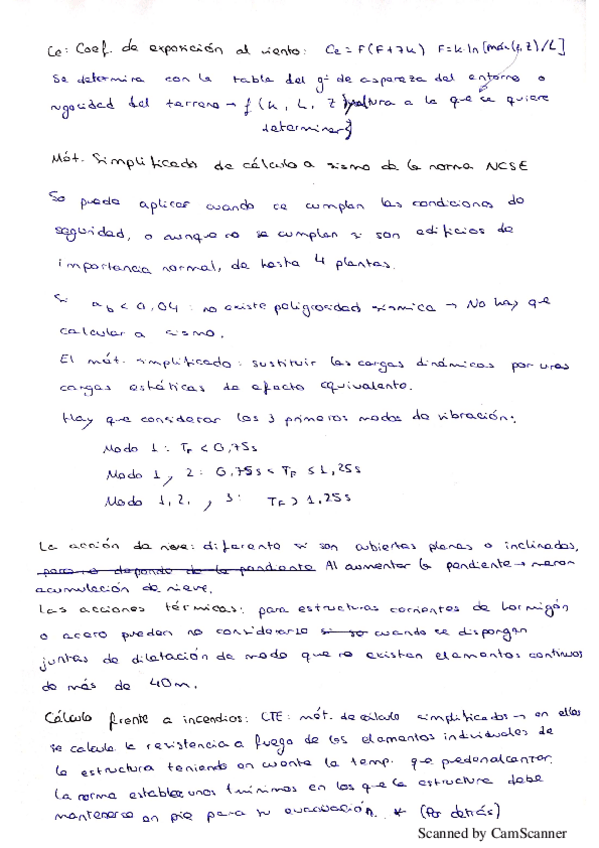 Ce: Coef. de exposición al viento: Ce = F(F+7k) F=k·ln[máx(z,Z)/L]
Se determina con la tabla del gº de aspereza del entorno o
rugosidad del terreno → f{k, L, Z altura a la que se quiere
determinar}
Mét. Simplificado de cálculo a sismo de la norma NCSE
Se puede aplicar cuando se cumplan las condiciones de
seguridad, o aunque no se cumplan si son edificios de
importancia normal, de hasta 4 plantas.
Si ab < 0,04: no existe peligrosidad sísmica → No hay que
calcular a sismo.
El mét. simplificado: sustituir las cargas dinámicas por unas
cargas estáticas de efecto equivalente.
Hay que considerar los 3 primeros modos de vibración:
Modo 1: TF < 0,75s
Modo 1, 2: 0,75s < TF ≤ 1,25s
Modo 1, 2, y 3: TF > 1,25s
La acción de nieve: diferente si son cubiertas planas o inclinadas,
para no depende de la pendiente Al aumentar la pendiente → menor
acumulación de nieve.
Las acciones térmicas: para estructuras corrientes de hormigón
o acero pueden no considerarse si so cuando se dispongan
juntas de dilatación de modo que no existan elementos continuos
de más de 40m.
Cálculo frente a incendios: CTE: mét. de cálculo simplificados → en ellos
se calcula la resistencia a fuego de los elementos individuales de
la estructura teniendo en cuenta la temp. que puedan alcanzar.
La norma establece unos tmínimos en los que la estructura debe
mantenerse en pie para su evacuación. * (Por detrás)
Scanned by CamScanner